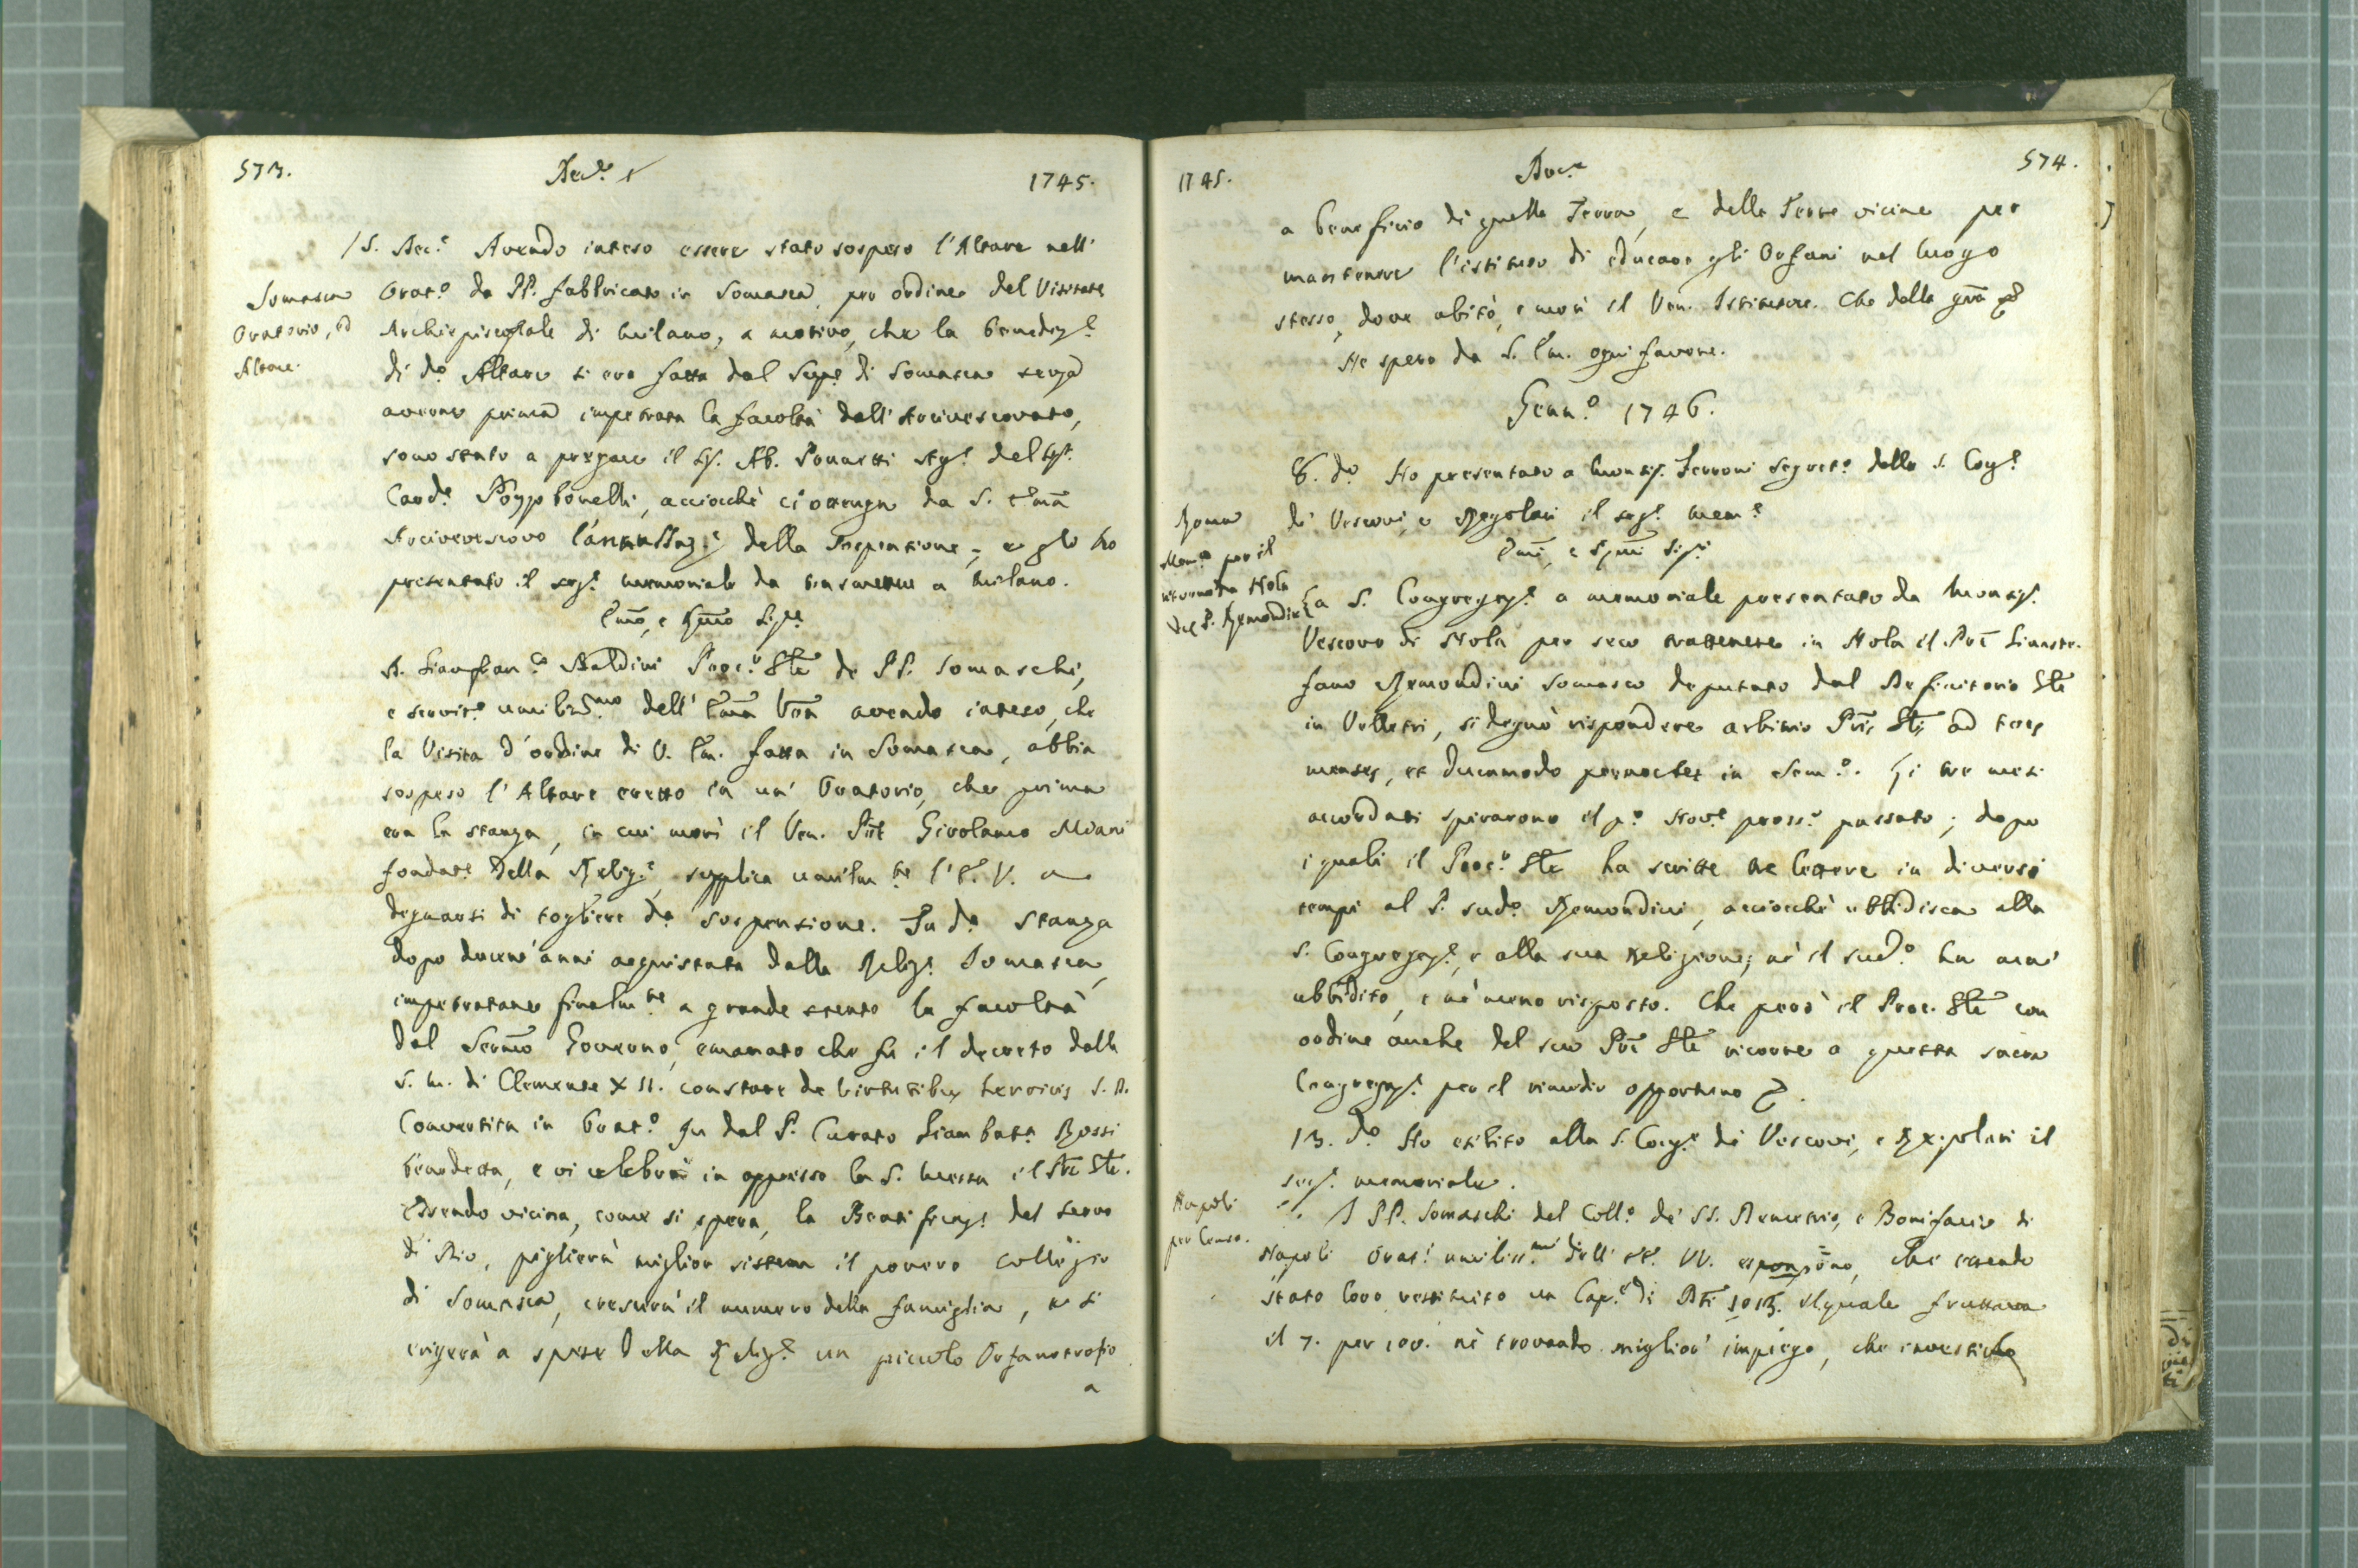 573. Dec.e 1745.
15. Dec.e Avendo inteso essere stato sospeso l'Altare nell'
Somasca
Oratorio, ed
Altare.
Orat.o da PP. fabbricato in Somasca per ordine del Visitat.e
Archiepiscopale di Milano, a motivo, che la benediz.e
di d.o Altare si era fatta dal Sup.e di Somasca senza
averne prima impetrata la facoltà dall'Arcivescovato,
sono stato a pregare il Sig. Ab. Segr.o del Sig.
Card.e Pozzobonelli, acciocchè ci ottenga da S. Em̄a
Arcivescovo l'annullaz.e della Sospensione; e gli ho
presentato il seg.e memoriale da trasmettere a Milano.
Em̄o, e Rm̄o Sig.re
D. Gianfran.co Baldini Proc.r Gle de PP. Somaschi,
e servit.e umiliss.mo dell'Em̄a Vr̄a avendo inteso, che
la Visita d'ordine di V. Em. fatta in Somasca, abbia
sospeso l'Altare eretto in un'Oratorio, che prima
era la stanza, in cui morì il Ven. P̄re Girolamo Miani
fondat.e della Relig.e, supplica umilm.te l'E. V. a
degnarsi di togliere d.a sospensione. La d.a stanza
dopo ducent'anni acquistata dalla Relig.e Somasca,
impetratane finalm.te a grande stento la facoltà
dal Serm̄o Governo, emanato che fu il decreto dalla
S. M. di Clemente XII. constare de virtutibus heroicis S. D.
Convertita in Orat.o fu dal P. Curato Giambatt.a Rossi
benedetta, e vi celebrò in appresso la S. Messa il P̄re Gle.
Essendo vicina, come si spera, la Beatificaz.e del Servo
di Dio, piglierà miglior sistema il povero collegio
di Somasca, crescerà il numero della famiglia, e si
erigerà a spese della Relig.e un piccolo Orfanotrofio
a
1745. Dec.e 574.
a beneficio di quella Terra, e delle Terre vicine per
mantenere l'istituto di educare gli Orfani nel luogo
stesso, dove abitò, e morì il Ven. Istitutore. Che della gr̄a
Ne spera da S. Em. ogni favore.
Genn.o 1746.
8. d.o Ho presentato a Monsig. Ferroni Segret.o della S. Cog.e
Roma
Mem.e per il
ritorno da Nola
del P. Remondini
di Vescovi, e Regolari il seg.e mem.e
Em̄i, e Rm̄i Sig.ri
La S. Congregaz.e a memoriale presentato da Monsig.
Vescovo di Nola per seco trattenere in Nola il P̄re Gianste-
fano Remondini Somasco deputato dal Definitorio Gle
in Velletri, si degnò rispondere arbitrio P̄ris Glis ad tres
menses, et dummodo pernoctet in Sem.o. Gi tre mesi
accordati spirarono il p.o Nov.e pross.o passato; dopo
i quali il Proc.r Gle ha scritte tre lettere in diversi
tempi al P. sud.o Remondini, acciocchè ubbidisca alla
S. Congregaz.e, e alla sua Religione; nè il sud.o ha mai
ubbidito, e nè meno risposto. Che però il Proc. Gle con
ordine anche del suo P̄re Gle ricorre a questa sacra
Congregaz.e per il rimedio opportuno
13. d.o Ho esibito alla S. Cog.e di Vescovi, e Regolari il
seg.e memoriale.
Napoli
per Censo.
I PP. Somaschi del Coll.o de' SS. Demetrio, e Bonifacio di
Napoli Orat.i umiliss.mi dell'EE. VV. espongono, che essendo
stato loro restituito un Cap.e di il quale fruttava
il 7. per 100. nè trovando miglior impiego, che investirlo